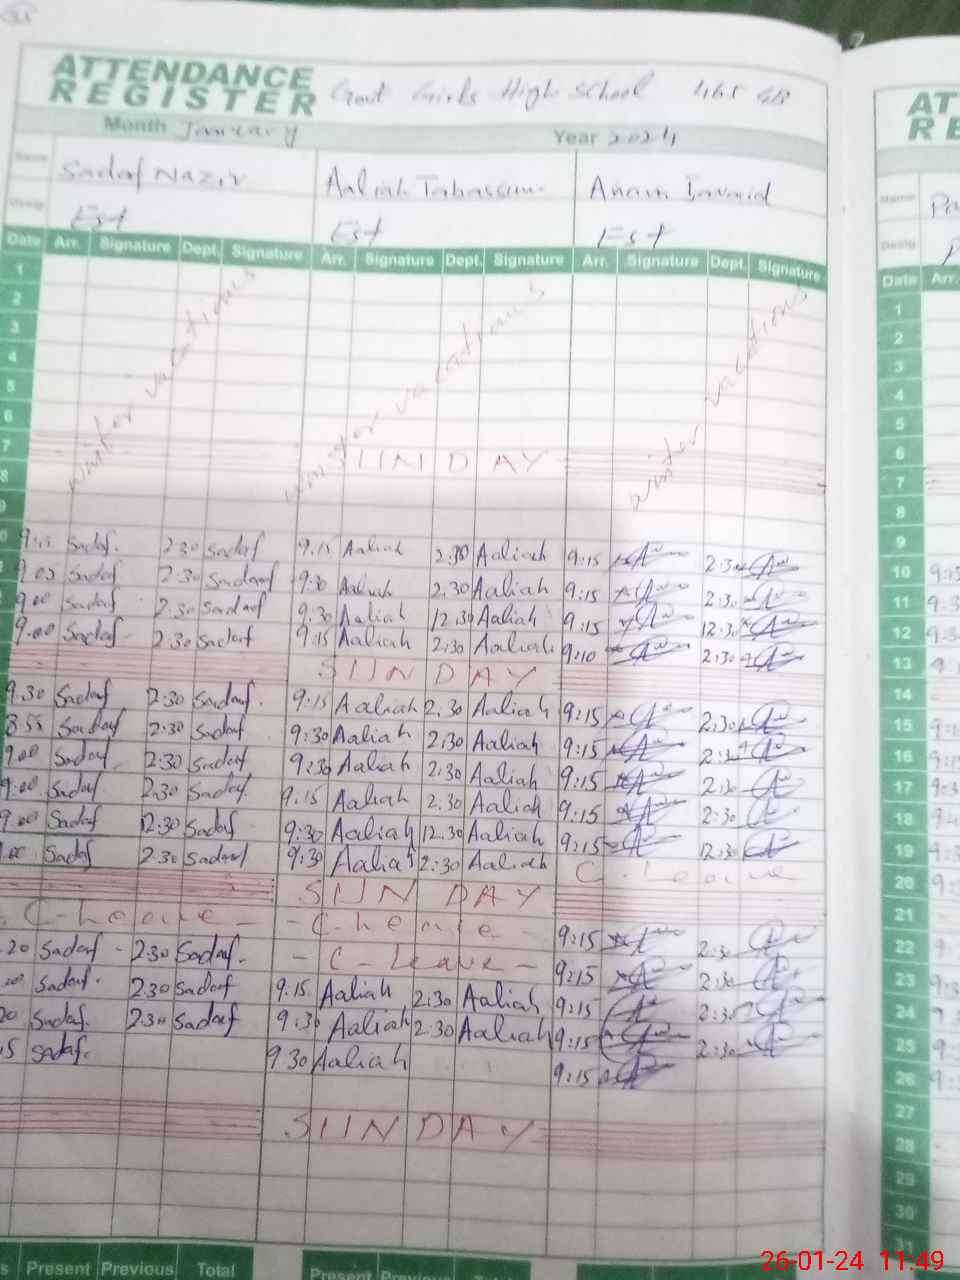 31
ATTENDANCE
REGISTER Govt Girls High School 465 GB
Month January Year 2024
Name Sadaf Nazir Aaliah Tabassum Anam Javaid
Desig Est Est Est
Date Arr. Signature Dept. Signature Arr. Signature Dept. Signature Arr. Signature Dept. Signature
1
2
3
4
5
6
7
8
winter vacations winter vacations winter vacations
SUNDAY
9:15 Sadaf. 2:30 Sadaf 9:15 Aaliah 2:30 Aaliah 9:15 2:30
9:05 Sadaf 2:30 Sadaf 9:30 Aaliah 2:30 Aaliah 9:15 2:30
9:00 Sadaf 2:30 Sadaf 9:30 Aaliah 12:30 Aaliah 9:15 12:30
9:00 Sadaf 2:30 Sadaf 9:15 Aaliah 2:30 Aaliah 9:10 2:30
SUNDAY
9:30 Sadaf 2:30 Sadaf. 9:15 Aaliah 2:30 Aaliah 9:15 2:30
8:55 Sadaf 2:30 Sadaf 9:30 Aaliah 2:30 Aaliah 9:15 2:30
9:00 Sadaf 2:30 Sadaf 9:30 Aaliah 2:30 Aaliah 9:15 2:30
9:00 Sadaf 2:30 Sadaf 9:15 Aaliah 2:30 Aaliah 9:15 2:30
9:00 Sadaf 2:30 Sadaf 9:30 Aaliah 12:30 Aaliah 9:15 12:30
Sadaf 2:30 Sadaf 9:30 Aaliah 2:30 Aaliah C-Leave
SUNDAY
C-Leave - C-Leave - 9:15 2:30
20 Sadaf - 2:30 Sadaf. - C-Leave - 9:15 2:30
Sadaf. 2:30 Sadaf 9:15 Aaliah 2:30 Aaliah 9:15 2:30
20 Sadaf. 2:30 Sadaf 9:30 Aaliah 2:30 Aaliah 9:15 2:30
Sadaf. 9:30 Aaliah 9:15
SUNDAY
Present Previous Total Present Previous
Name
Desig.
Date Arr.
1
2
3
4
5
6
7
8
9
10
11
12
13
14
15
16
17
18
19
20
21
22
23
24
25
26
27
28
29
30
31
26-01-24 11:49